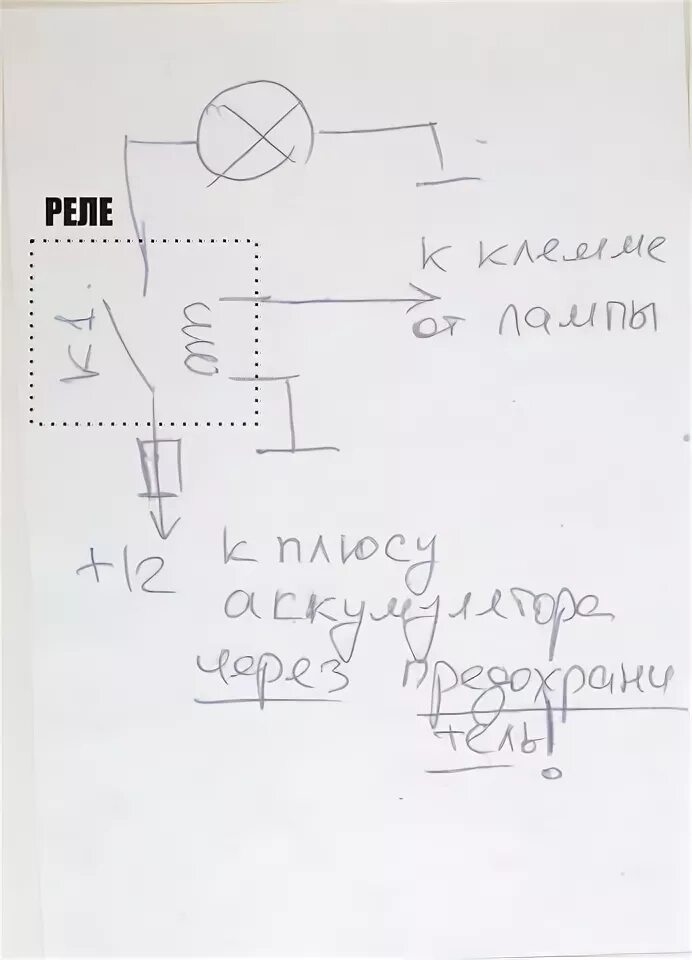 РЕЛЕ
К1.
к клемме
от лампы
+12
к плюсу
аккумулятора
через предохрани
тель!